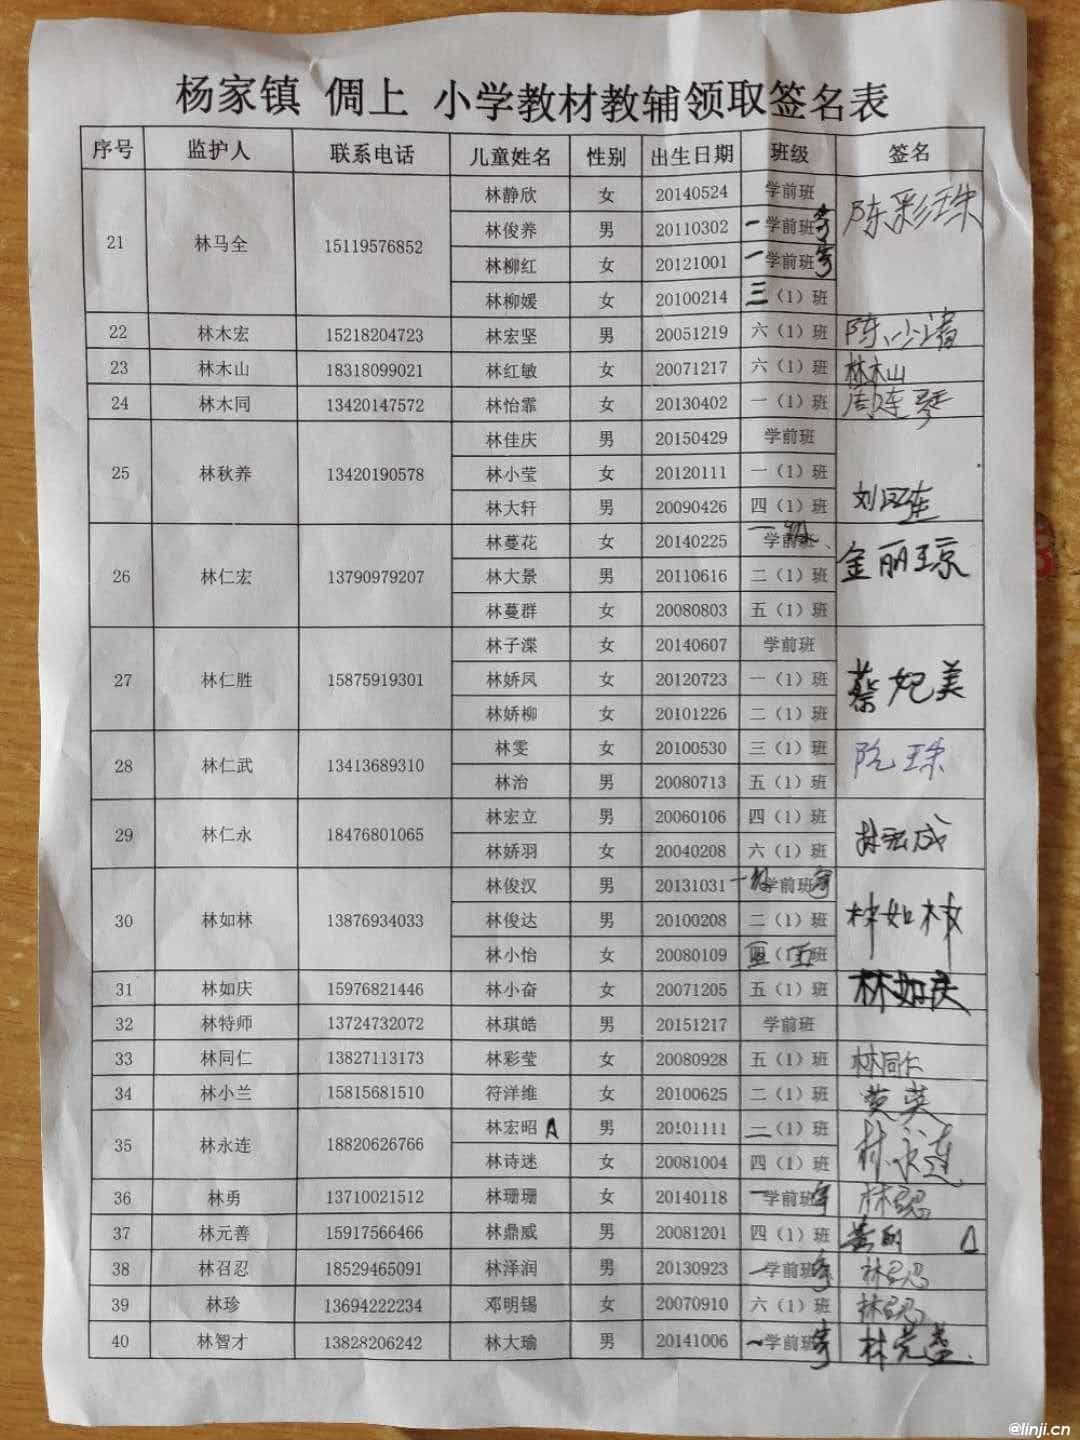 杨家镇 倜上 小学教材教辅领取签名表
序号 监护人 联系电话 儿童姓名 性别 出生日期 班级 签名
21 林马全 15119576852 林静欣 女 20140524 学前班 陈彩珠
林俊养 男 20110302 一 学前班
林柳红 女 20121001 一 学前班
林柳媛 女 20100214 三（1）班
22 林木宏 15218204723 林宏坚 男 20051219 六（1）班
23 林木山 18318099021 林红敏 女 20071217 六（1）班 林木山
24 林木同 13420147572 林怡霏 女 20130402 一（1）班 周连琴
25 林秋养 13420190578 林佳庆 男 20150429 学前班
林小莹 女 20120111 一（1）班
林大轩 男 20090426 四（1）班
26 林仁宏 13790979207 林蔓花 女 20140225 一级 学前班 金丽琼
林大景 男 20110616 二（1）班
林蔓群 女 20080803 五（1）班
27 林仁胜 15875919301 林子渫 女 20140607 学前班 蔡妃美
林娇凤 女 20120723 一（1）班
林娇柳 女 20101226 二（1）班
28 林仁武 13413689310 林雯 女 20100530 三（1）班
林治 男 20080713 五（1）班
29 林仁永 18476801065 林宏立 男 20060106 四（1）班 林宏成
林娇羽 女 20040208 六（1）班
30 林如林 13876934033 林俊汉 男 20131031 一级 学前班 林如林
林俊达 男 20100208 二（1）班
林小怡 女 20080109 五 班
31 林如庆 15976821446 林小奋 女 20071205 五（1）班 林如庆
32 林特师 13724732072 林琪皓 男 20151217 学前班
33 林同仁 13827113173 林彩莹 女 20080928 五（1）班 林同仁
34 林小兰 15815681510 符洋维 女 20100625 二（1）班 黄英
35 林永连 18820626766 林宏昭 A 男 20101111 二（1）班 林永连
林诗迷 女 20081004 四（1）班
36 林勇 13710021512 林珊珊 女 20140118 一 学前班 林召忍
37 林元善 15917566466 林鼎威 男 20081201 四（1）班
38 林召忍 18529465091 林泽润 男 20130923 一 学前班 林召忍
39 林珍 13694222234 邓明锡 女 20070910 六（1）班 林召忍
40 林智才 13828206242 林大瑜 男 20141006 一 学前班
@linji.cn